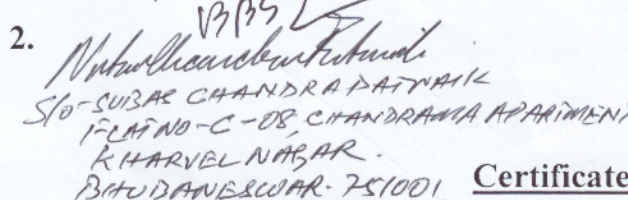 BBS
2.
S/o-SUBAS CHANDRA PATNAIK
FLAT NO-C-08, CHANDRAMA APARTMENT
KHARVEL NAGAR.
BHUBANESWAR-751001
Certificate